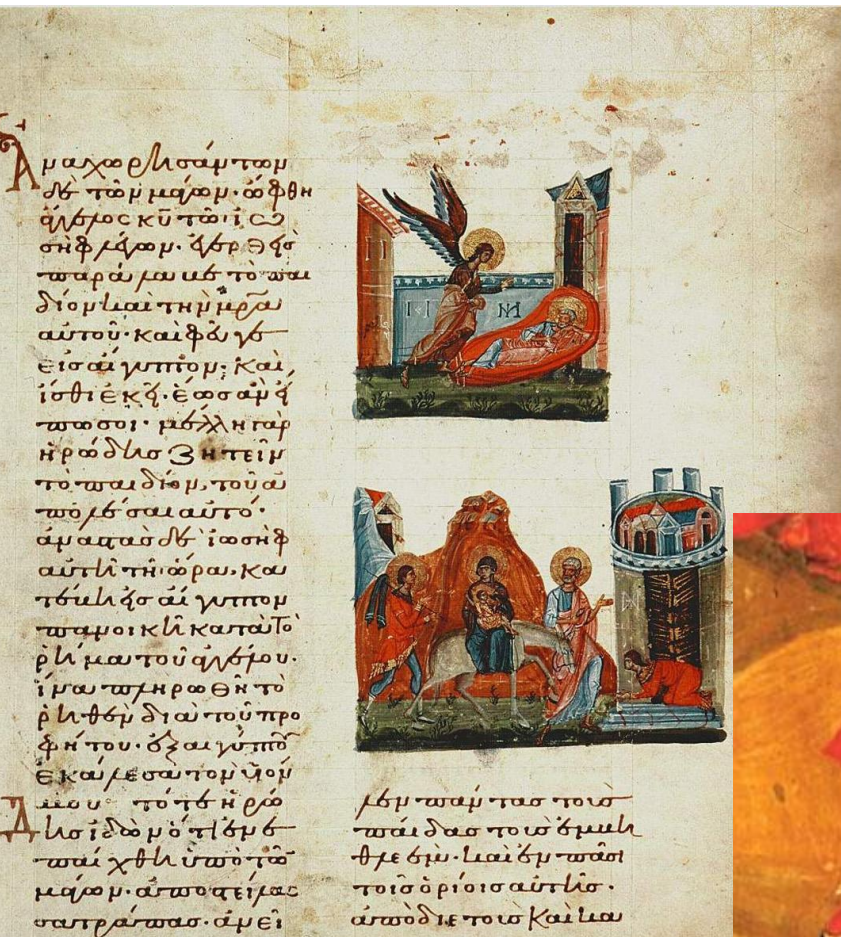 Ἀναχωρησάντων
δὲ τῶν μάγων· ὤφθη
ἄγγελος κ̅υ̅ τῶ ἰω
σὴφ λέγων· ἐγερθεὶς
παράλαβε τὸ παι
δίον καὶ τὴν μ̅ρ̅α̅
αὐτοῦ· καὶ φεῦγε
εἰς αἴγυπτον· καὶ
ἴσθι ἐκεῖ· ἕως ἂν εἴ
πω σοι· μέλλει γὰρ
ἡρώδης ζητεῖν
τὸ παιδίον, τοῦ ἀ
πολέσαι αὐτό·
ἀναστὰς δὲ ἰωσὴφ
αὐτῆ τῆ ὥρα,
αἴγυπτον
κατὰ τὸ
ῥῆμα τοῦ ἀγγέλου·
ἵνα πληρωθῆ τὸ
ῥηθὲν διὰ τοῦ προ
φήτου· ἐξ αἰγύπτου
ἐκάλεσα τὸν υἱόν
μου τότε ἡρώ
δης ἰδὼν ὅτι ἐνε
παίχθη ὑπὸ τῶ
μάγων· ἀποστείλας
σατράπας· ἀνεῖ
λεν πάντας τοὺς
παῖδας τοὺς ἐν βη
θλεέμ· καὶ ἐν πᾶσι
τοῖς ὁρίοις αὐτῆς·
ἀπὸ διετοῦς καὶ κα